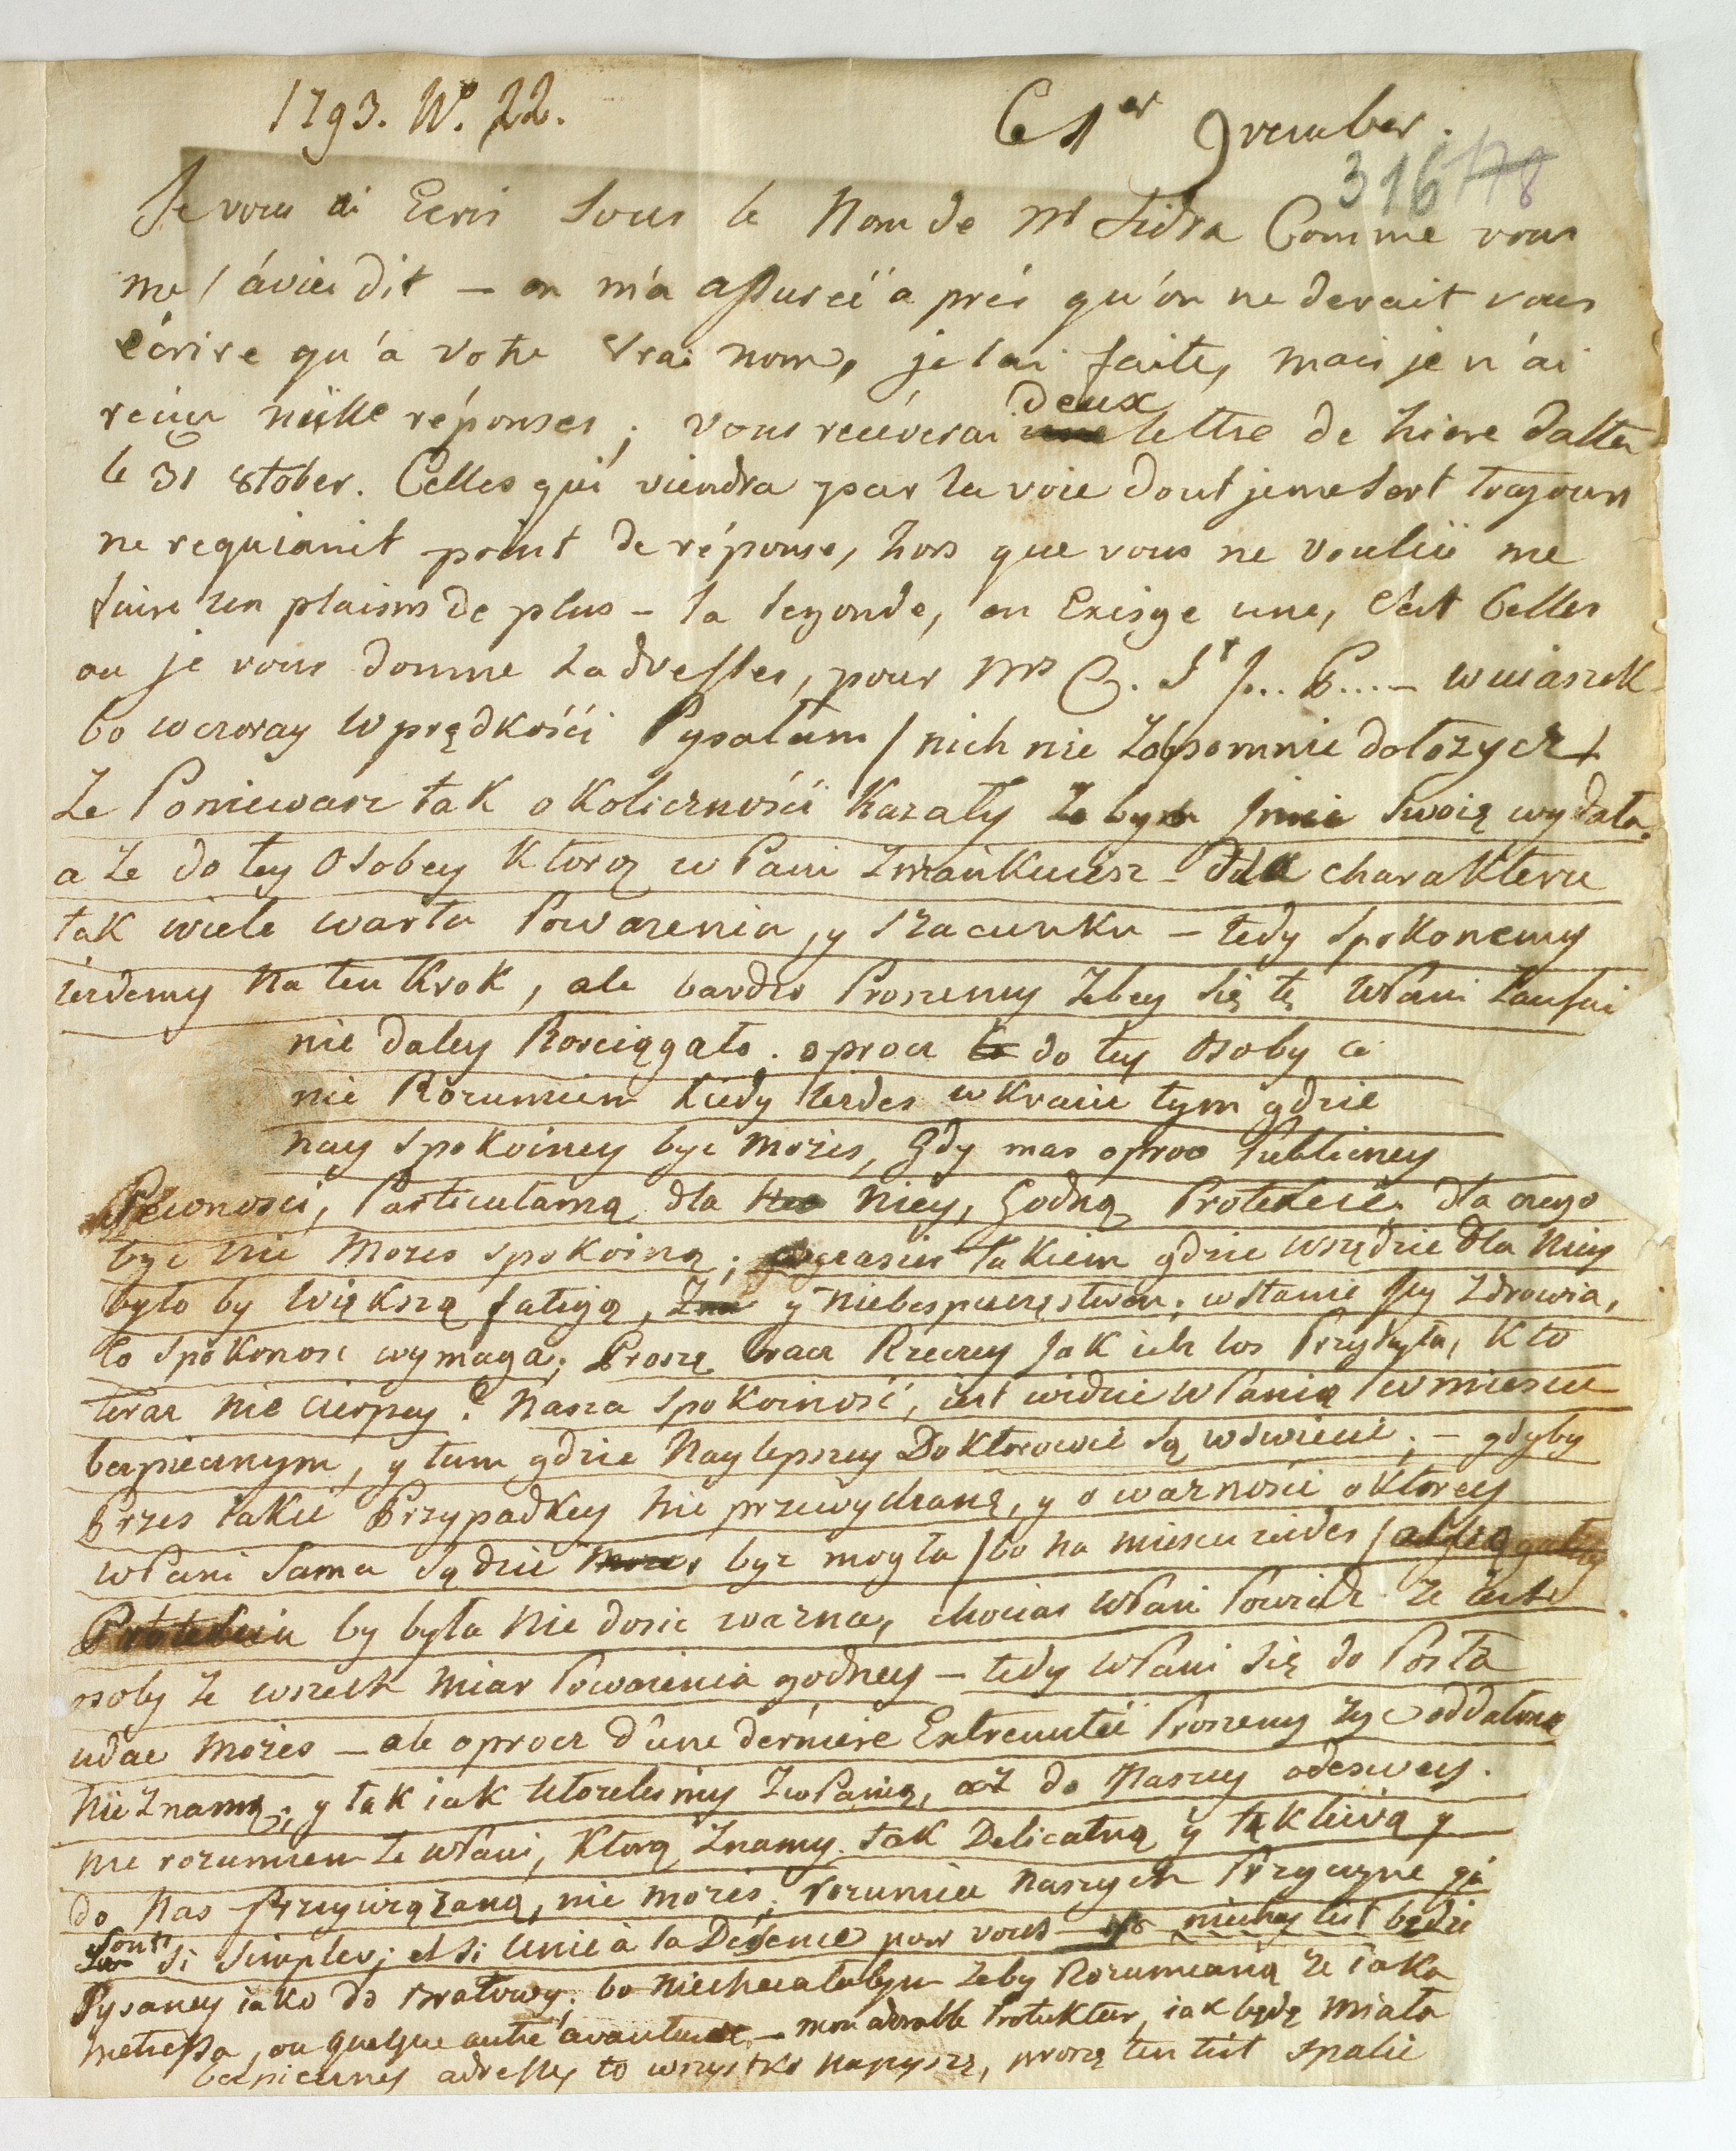 1793. No. 22.
Ce 1er 9vember.
316 178
Je vous ai Ecris sous le Nom de Mr Sidra Comme vous
me l'áviéz dit — on m'a assureé a prés qu'on ne devait vous
écrire qu'a votre vrai nom, je lai faite, mais je n'ai
reçue nulle réponses; vous recéverai deux lettre de hiere datter
le 31 8tober. Celles qui viendra par la voie dont je me sert toujours
ne point de réponse, hors que vous ne me
faire un plaisirs de plus — la segonde, en Exisge une, c'est Celles
ou je vous donne Ladresses, pour Mr C. St J... B.... —
bo wczoray w prędkośći Pysałam / nich nie Zapomnie dołozycz /
Ze Poniewasz tak okolicznośći Kazały Ze bym Jmie Swoię wydała.
a Ze do tey Osobey Ktorą w Pani dla charakteru
tak wiele warta Powazenia, y szacunku — tedy Spokonemy
iezdemy Na ten Krok, ale bardzo Proszemy Zebey się tę WPani
nie daley Rosciągało. oprocz do tey Osoby co
nie Rozumiem Kiedy iezdes w Kraiu tym gdzie
nay Spokoiney byc mozes, Gdy mas oproc Publiczney
Pewnosci, Particularną dla Niey, Godną Protekcie. dla czego
byc nie Mozes Spokoiną; czasie takiem gdzie wszędzie dla Niey
było by większą fatigą, y Niebespieczęstwem; w stanie Jey Zdrowia,
co Spokonosc wymaga; Proszę brac Rzeczey Jak ich los Przysyła, Kto
teraz nie cierpey? Nasza Spokoinosć, iest widzic WPanią w miescu
bespiecznym, y tam gdzie Naylepszey Doktorowie są w swiecie; — gdyby
Przes iakie Przypadkey nie przewydzianę, y o waznosći o Ktorey
WPani Sama sądzic byc mogła / bo na miescu iezdes /
by była Nie dosic wazna, chocias WPani Powidz Ze iest
osoby Ze wszech Miar Powazenia godney — tedy WPani Się do Posła
udac Mozes — ale oprocz d'une derniere Extremitéé Proszemy Zeys oddalona
Nie Znamą; y tak iak WPanią, az do Naszey odeswey.
nie rozumiem Ze WPani, Ktorą Znamy tak Delicatną y y
do Nas Przeywiązaną, nie mozes; rozumiec Naszych Przyczyne qi
Sont Si Simples; et Si à la Désence pour vous — niechay list będzie
Pysaney iako do Bratowy; bo niechciałabym Zeby Rozumianą Ze iaka
Metressa, ou quelque autre avanture — mon adorable Protektur, iak będę Miała
bespieczney adressy to wszystko Napyszę, proszę ten list spalic